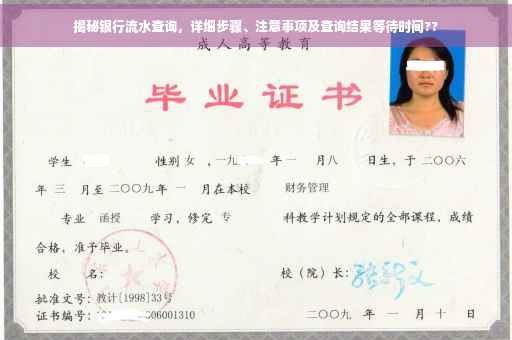 揭秘银行流水查询，详细步骤、注意事项及查询结果等待时间??
成人高等教育
毕业证书
学生 性别 女 ，一九 年 一 月八 日生，于 二〇〇六
年 三 月至 二〇〇九 年 一 月在本校 财务管理
专业 函授 学习，修完 专 科教学计划规定的全部课程，成绩
合格，准予毕业。
校 名： 校（院）长：
批准文号：教计[1998]33号
证书编号： 06001310 二〇〇九 年 一 月 十 日